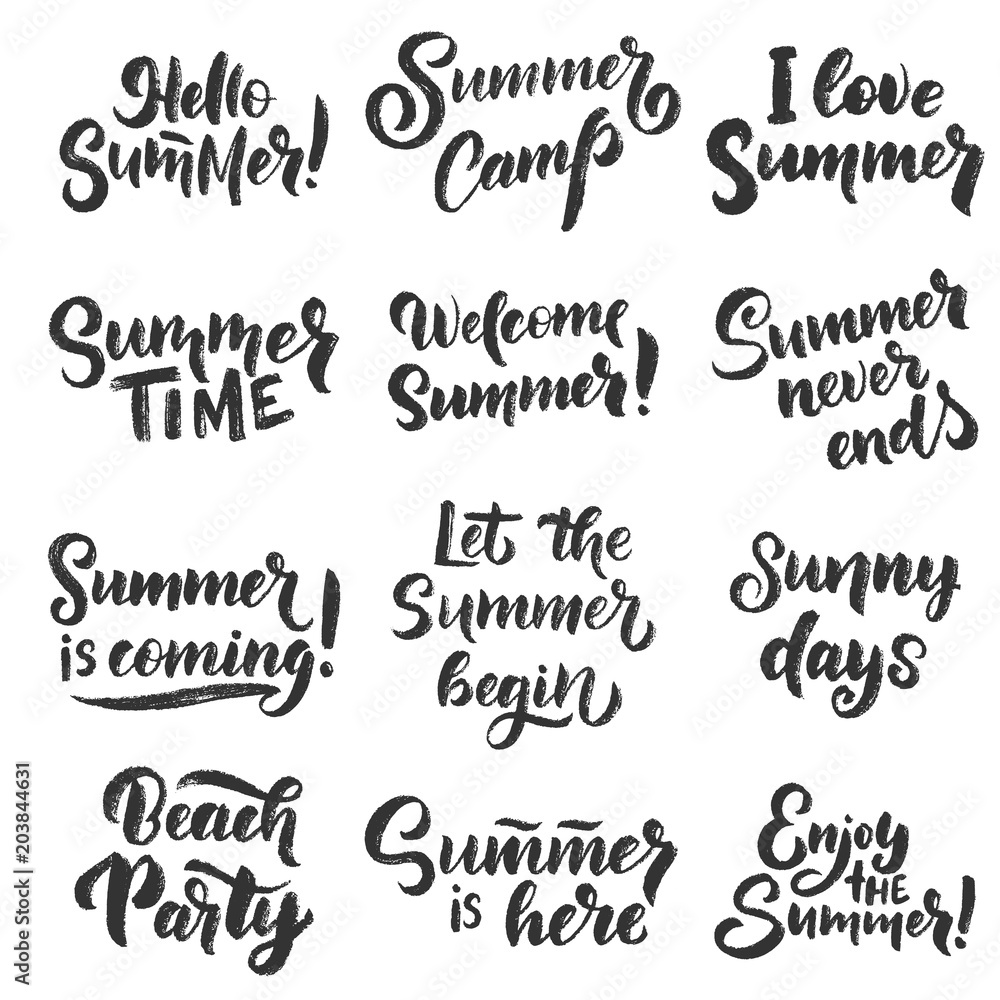 Hello
SumMer!
Summer
Camp
I love
Summer
Summer
TIME
Welcome
Summer!
Summer
never
ends
Summer
is coming!
Let the
Summer
begin
Sunny
days
Beach
Party
Summer
is here
Enjoy
THE
Summer!
Adobe Stock | #203844631